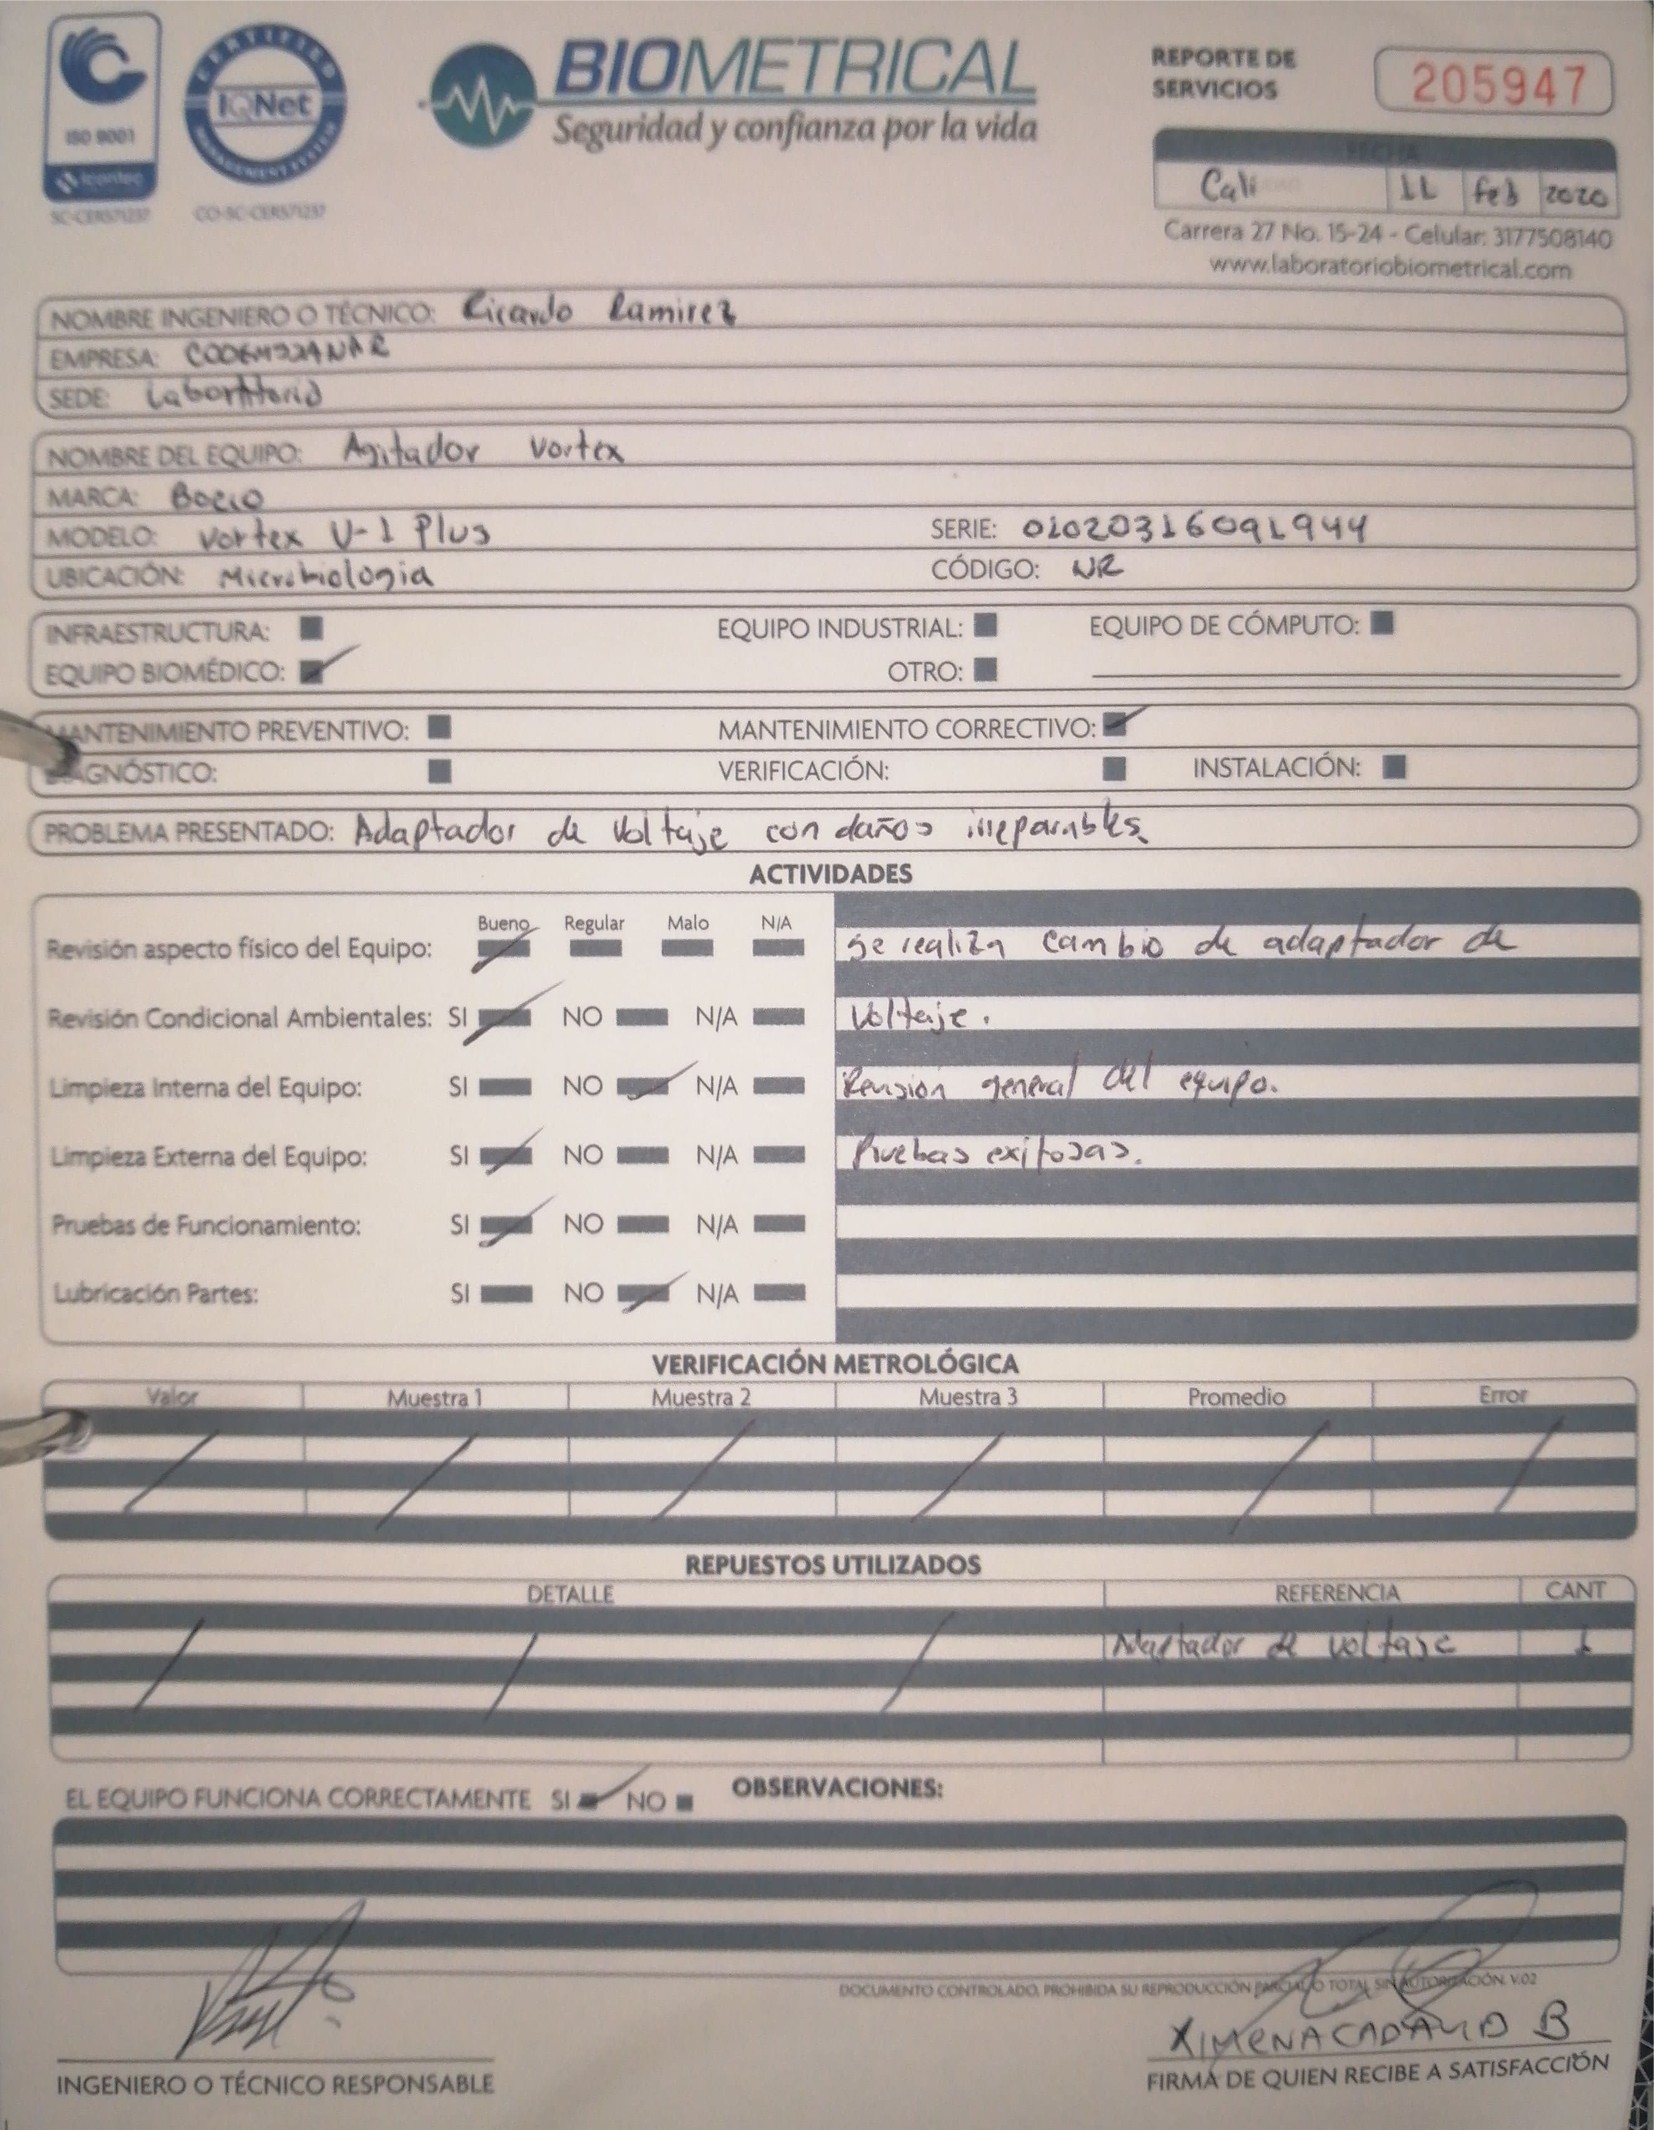 ISO 9001
icontec
SC-CER571237
CERTIFIED
IQNet
MANAGEMENT SYSTEM
CO-SC-CER571237
BIOMETRICAL
Seguridad y confianza por la vida
REPORTE DE
SERVICIOS
205947
FECHA
Cali 11 feb 2020
Carrera 27 No. 15-24 - Celular: 3177508140
www.laboratoriobiometrical.com
NOMBRE INGENIERO O TÉCNICO: Ricardo Ramirez
EMPRESA:
SEDE: Laboratorio
NOMBRE DEL EQUIPO: Agitador Vortex
MARCA: Boeco
MODELO: Vortex V-1 Plus SERIE: 01020316091944
UBICACIÓN: Microbiologia CÓDIGO: NR
INFRAESTRUCTURA: EQUIPO INDUSTRIAL: EQUIPO DE CÓMPUTO:
EQUIPO BIOMÉDICO: OTRO:
MANTENIMIENTO PREVENTIVO: MANTENIMIENTO CORRECTIVO:
DIAGNÓSTICO: VERIFICACIÓN: INSTALACIÓN:
PROBLEMA PRESENTADO: Adaptador de Voltaje con daños irreparables
ACTIVIDADES
Bueno Regular Malo N/A
Revisión aspecto físico del Equipo:
Revisión Condicional Ambientales: SI NO N/A
Limpieza Interna del Equipo: SI NO N/A
Limpieza Externa del Equipo: SI NO N/A
Pruebas de Funcionamiento: SI NO N/A
Lubricación Partes: SI NO N/A
Se realiza cambio de adaptador de
Voltaje.
Revision general del equipo.
Pruebas exitosas.
VERIFICACIÓN METROLÓGICA
Valor Muestra 1 Muestra 2 Muestra 3 Promedio Error
REPUESTOS UTILIZADOS
DETALLE REFERENCIA CANT
Adaptador de voltaje 1
EL EQUIPO FUNCIONA CORRECTAMENTE SI NO OBSERVACIONES:
DOCUMENTO CONTROLADO, PROHIBIDA SU REPRODUCCIÓN PARCIAL O TOTAL SIN AUTORIZACIÓN. V.02
XIMENA CADAVID B
INGENIERO O TÉCNICO RESPONSABLE
FIRMA DE QUIEN RECIBE A SATISFACCIÓN